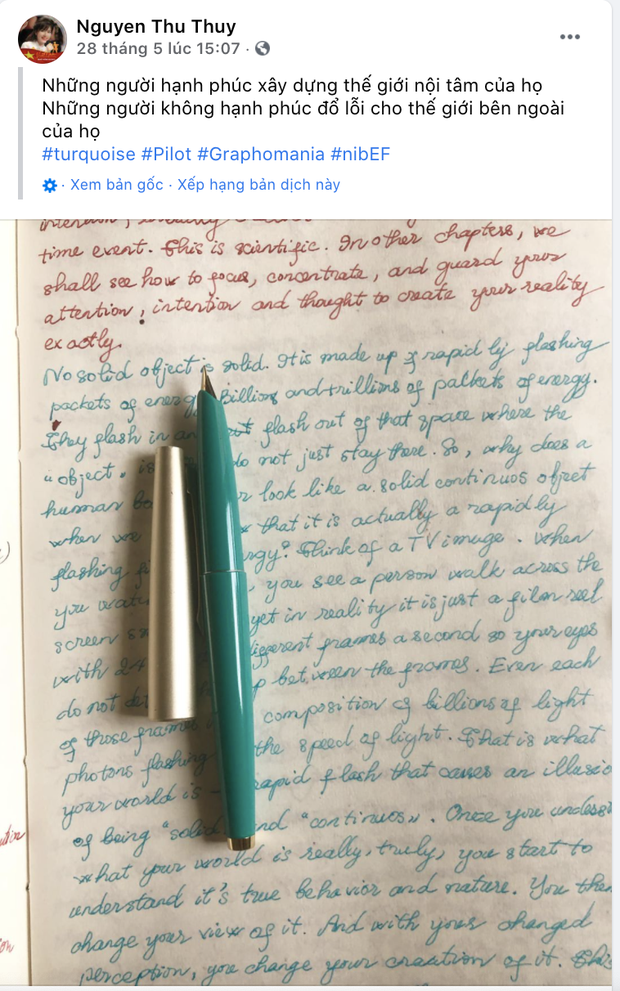 Nguyen Thu Thuy
28 tháng 5 lúc 15:07 ·
Những người hạnh phúc xây dựng thế giới nội tâm của họ
Những người không hạnh phúc đổ lỗi cho thế giới bên ngoài
của họ
#turquoise #Pilot #Graphomania #nibEF
· Xem bản gốc · Xếp hạng bản dịch này
intention,
time event. This is scientific. In other chapters, we
shall see how to focus, concentrate, and guard your
attention, intention and thought to create your reality
exactly.
No solid object is solid. It is made up of rapidly flashing
packets of energy. Billions and trillions of packets of energy.
They flash in and out flash out of that space where the
"object" is do not just stay there. So, why does a
human bo r look like a solid continuos object
when we that it is actually a rapidly
flashing rgy? Think of a TV image. When
you wat , you see a person walk across the
screen s yet in reality it is just a film reel
with 24 different frames a second so your eyes
do not det p between the frames. Even each
of those frames composition of billions of light
photons flashing the speed of light. That is what
your world is – rapid flash that causes an illusio
of being "solid" and "continuos". Once you underst
what your world is really, truly, you start to
understand it's true behavior and nature. You then
change your view of it. And with your changed
perception, you change your creation of it. This